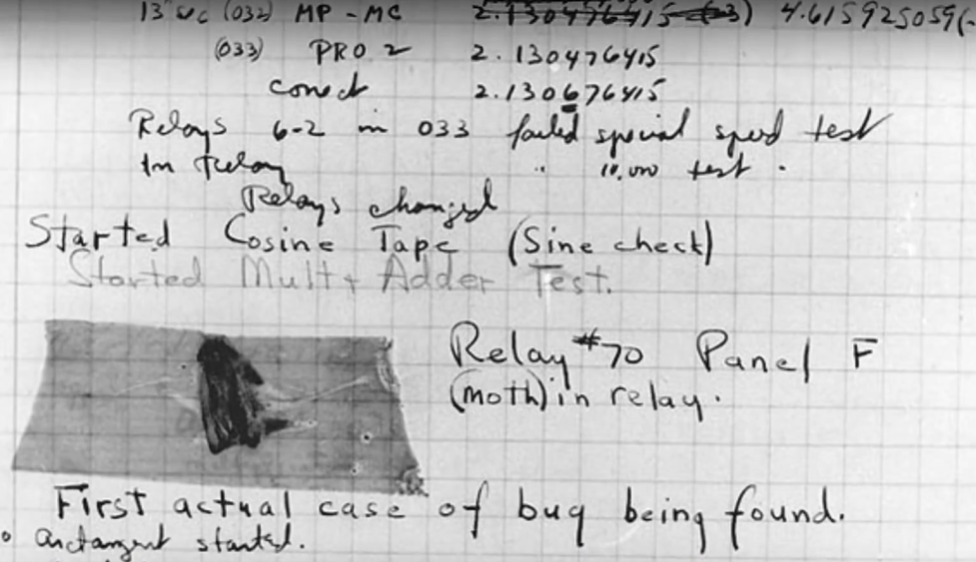 13" sec (032) MP - MC 2.130476415 4.615925059(-
(033) PRO 2 2.130476415
correct 2.130676415
Relays 6-2 in 033 failed special speed test
In Relay " 10.000 test .
Relays changed
Started Cosine Tape (Sine check)
Started Mult + Adder Test.
Relay #70 Panel F
(moth) in relay.
First actual case of bug being found.
arctangent started.